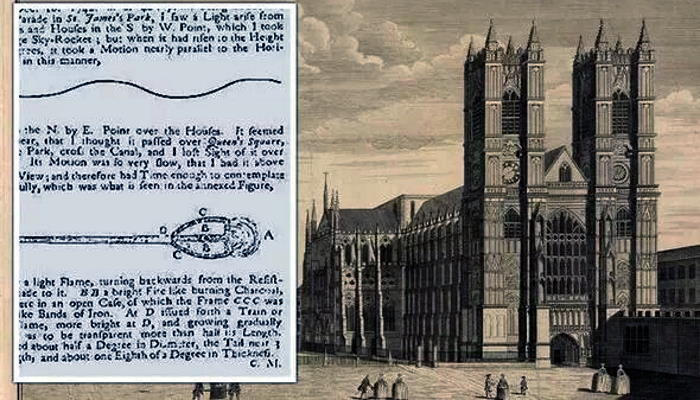 arade in St. James's Park, I ſaw a Light ariſe from
s and Houſes in the S. by W. Point, which I took
ge Sky-Rocket; but when it had riſen to the Height
rees, it took a Motion nearly parallel to the Hori-
in this manner,
the N. by E. Point over the Houſes. It ſeemed
ear, that I thought it paſſed over Queen's Square,
Park, croſs the Canal, and I loſt Sight of it over
Its Motion was ſo very ſlow, that I had it above
View; and therefore had Time enough to contemplate
ully, which was what is ſeen in the annexed Figure,
C
D B A
B
C
a light Flame, turning backwards from the Reſiſt-
ade to it. BB a bright Fire like burning Charcoal,
ere in an open Caſe, of which the Frame CCC was
ike Bands of Iron. At D iſſued forth a Train or
lame, more bright at D, and growing gradually
as to be tranſparent more than half its Length.
d about half a Degree in Diameter, the Tail near 3
gth, and about one Eighth of a Degree in Thickneſs.
C. M.